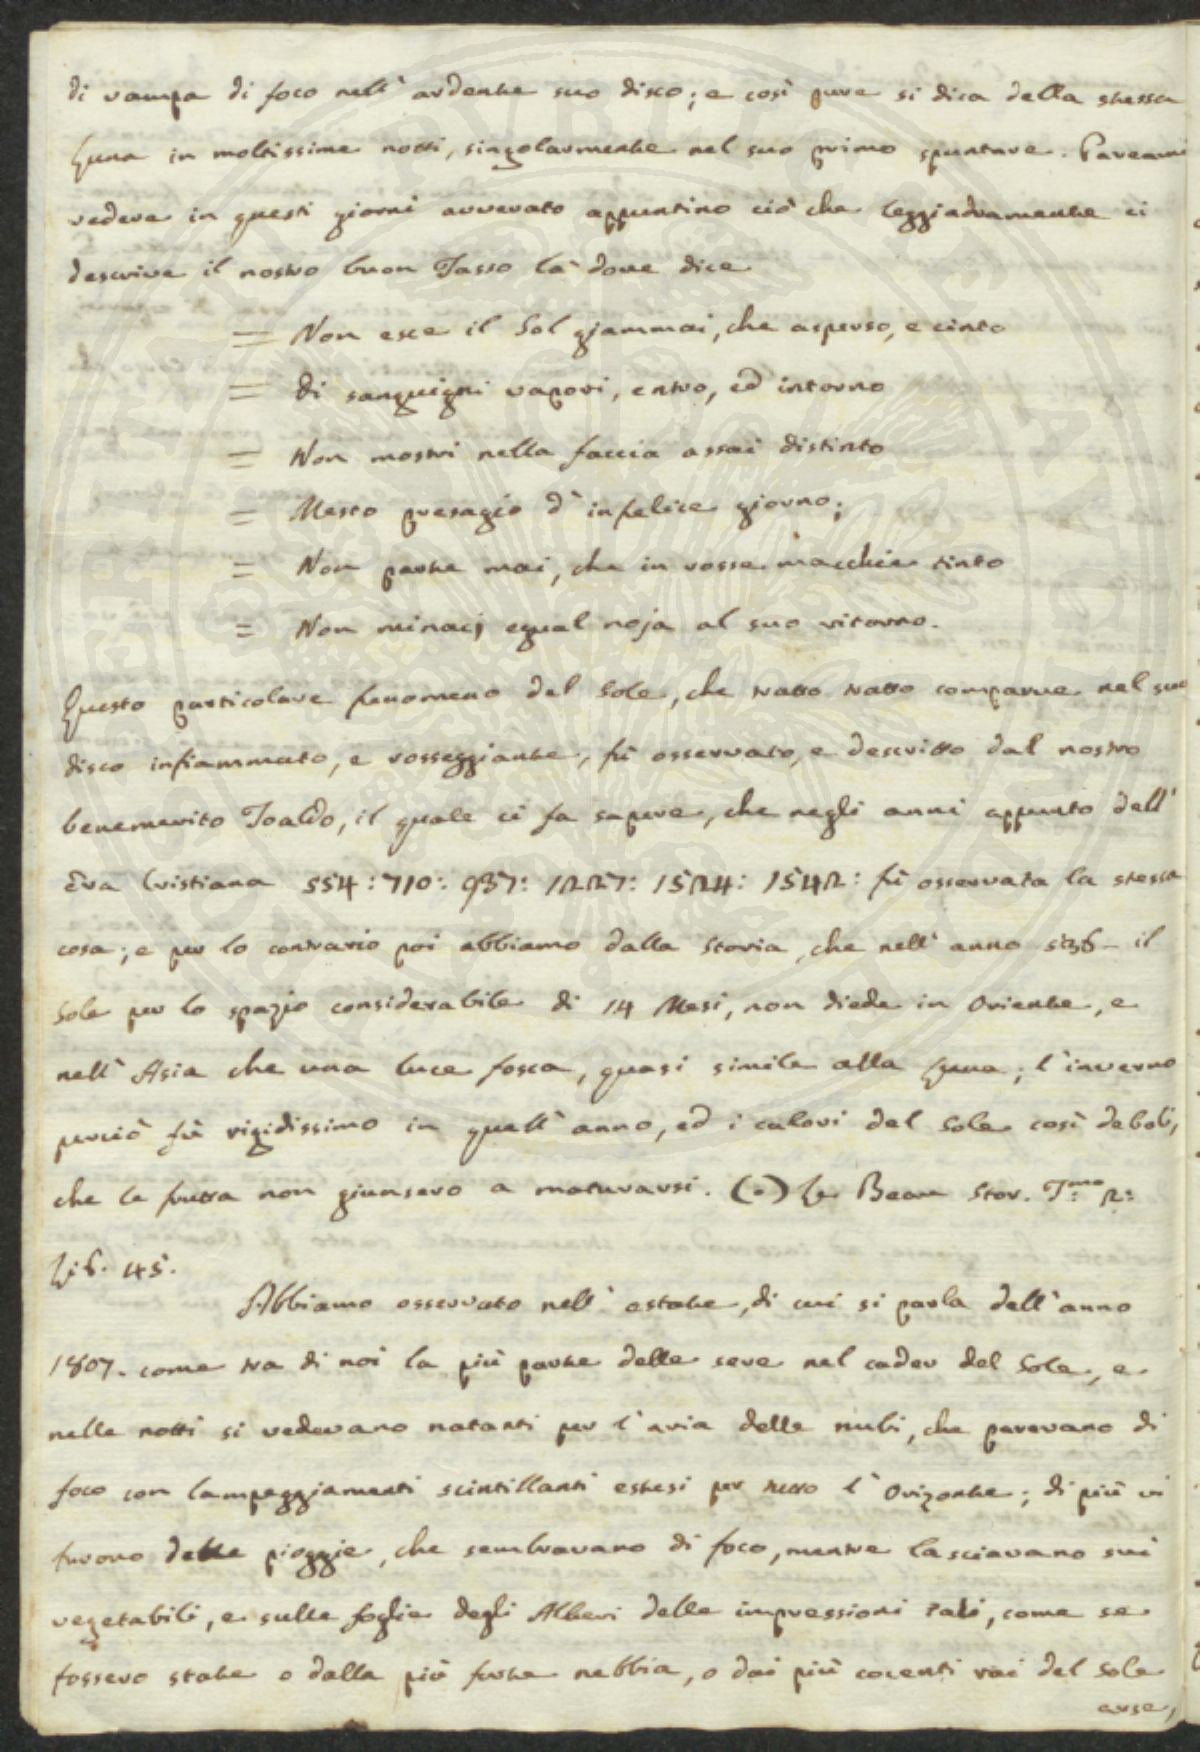 di vampa di foco nell' ardente suo disco; e così pure si dica della stessa
Luna in moltissime notti, singolarmente nel suo primo spuntare. Pareami
vedere in questi giorni avverato appuntino ciò che leggiadramente ci
descrive il nostro buon Tasso là dove dice
= Non esce il Sol giammai, che asperso, e cinto
= di sanguigni vapori, entro, ed intorno
= Non mostri nella faccia assai distinto
= Mesto presagio d' infelice giorno;
= Non parte mai, che in rosse macchie tinto
= Non minacj egual noja al suo ritorno.
Questo particolare fenomeno del Sole, che tratto tratto comparve nel suo
disco infiammato, e rosseggiante, fù osservato, e descritto dal nostro
benemerito Toaldo, il quale ci fa sapere, che negli anni appunto dell'
Era Cristiana 554: 710: 937: 1227: 1524: 1542: fù osservata la stessa
cosa; e per lo contrario poi abbiamo dalla Storia, che nell' anno 536- il
Sole per lo spazio considerabile di 14 Mesi, non diede in Oriente, e
nell' Asia che una luce fosca, quasi simile alla Luna; l' inverno
perciò fù rigidissimo in quell' anno, ed i calori del Sole così deboli,
che le frutta non giunsero a maturarsi. (o) Le Beau Stor. T:mo 2:
Lib. 45.
Abbiamo osservato nell' estate, di cui si parla dell' anno
1807. come tra di noi la più parte delle sere nel cader del Sole, e
nelle notti si vedevano natanti per l' aria delle nubi, che parevano di
foco con lampeggiamenti scintillanti estesi per tutto l' Orizonte; di più vi
furono delle pioggie, che sembravano di foco, mentre lasciavano sui
vegetabili, e sulle foglie degli Alberi delle impressioni tali, come se
fossero state o dalla più forte nebbia, o dai più cocenti rai del Sole
arse,